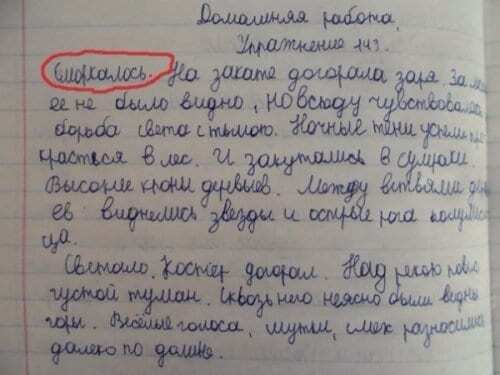 Домашняя работа.
Упражнение 143.
Смеркалось. На закате догорала заря. За
ее не было видно, но всюду чувствовалась
борьба света с тьмою. Ночные тени успели
красться в лес. И закутались в сумраки.
Высокие кроны деревьев. Между ветвями
ев виднелись звезды и острые рога полумеся
ца.
Светало. Костёр догорал. Над рекою
густой туман. Сквозь него неясно были видны
горы. Весёлые голоса, шутки, смех разносились
далеко по долине.